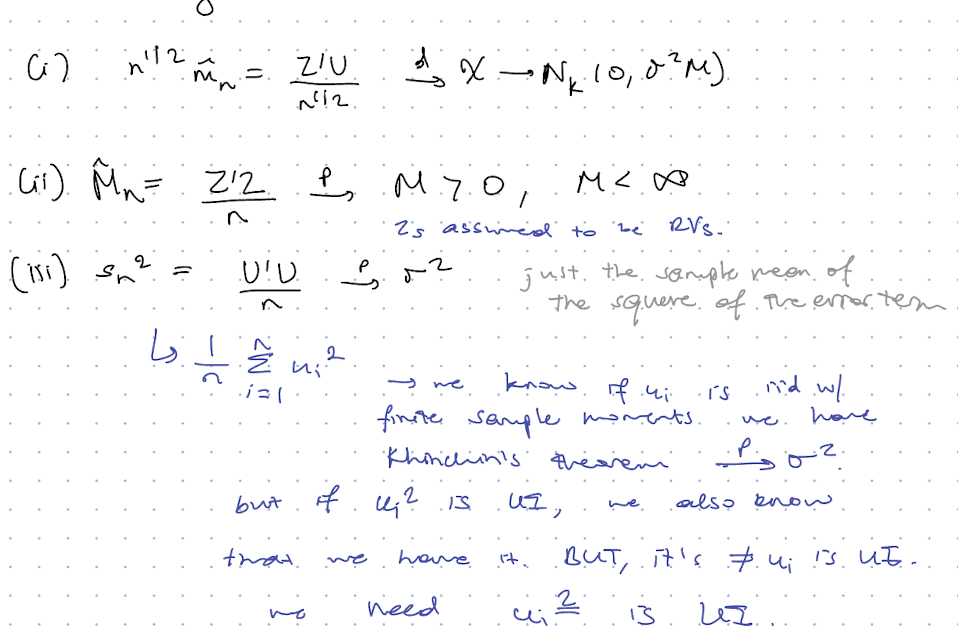 (i) n^{1/2} m̂_n = Z'U / n^{1/2} →d X → N_k (0, σ²M)
(ii) M̂_n = Z'Z / n →p M > 0, M < ∞
Zs assumed to be RVs.
(iii) s_n² = U'U / n →p σ² just the sample mean of
the square of the error term
↳ 1/n Σ_{i=1}^n u_i²
→ we know if u_i is iid w/
finite sample moments we have
Khinchin's theorem →p σ².
but if u_i² is UI, we also know
that we have it. BUT, it's ≠ u_i is UI.
we need u_i² is UI.